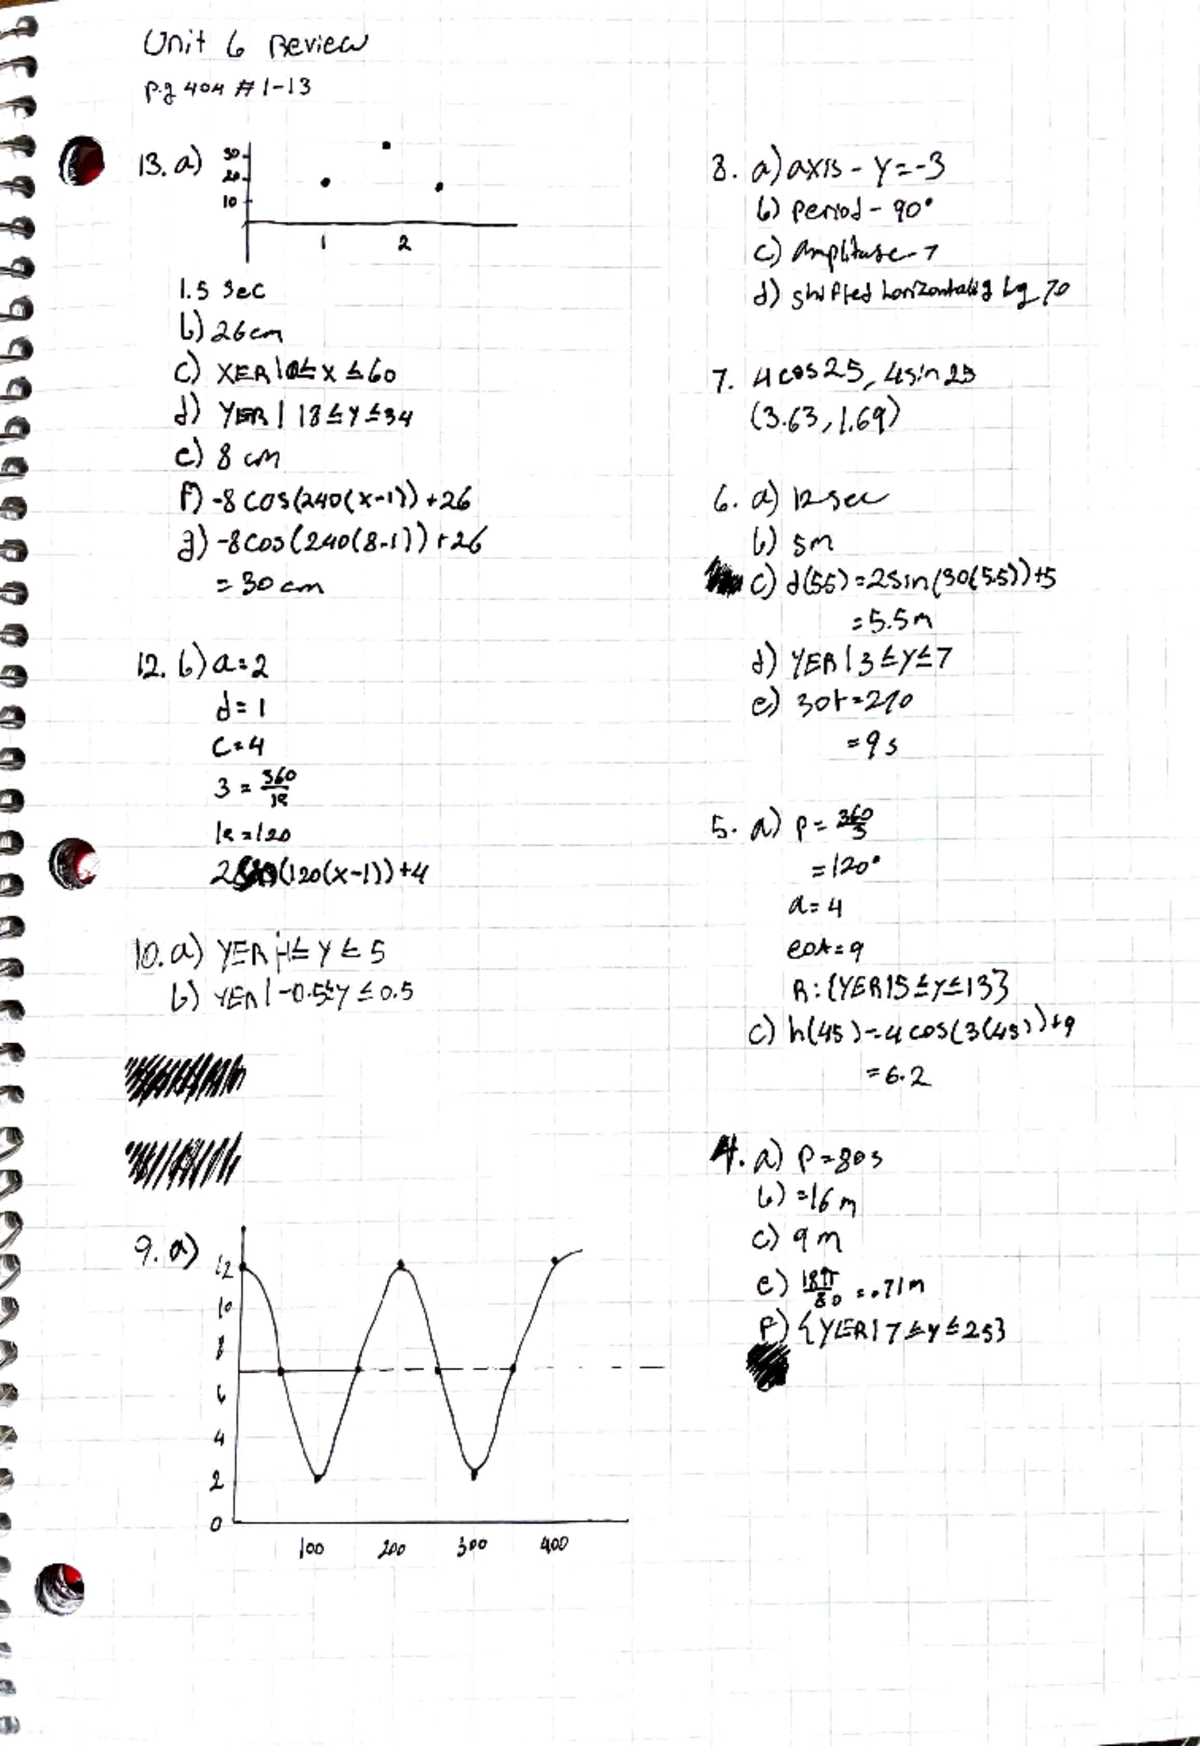 Unit 6 Review
pg 404 # 1-13
13. a)
30
20
10
1 2
1.5 sec
b) 26cm
c) XER|0≤x≤60
d) YER| 18≤Y≤34
e) 8 cm
f) -8cos(240(x-1))+26
g) -8cos(240(8-1))+26
= 30cm
12. b) a=2
d=1
c=4
3 = 360/k
k=120
2(120(x-1))+4
10. a) YER|-1≤Y≤5
b) YER|-0.5≤y≤0.5
9. a)
12
10
8
6
4
2
0
100 200 300 400
8. a) axis - y=-3
b) Period - 90°
c) Amplitude - 7
d) shifted horizontally by
7. 4cos25, 4sin25
(3.63, 1.69)
6. a) 12sec
b) 5m
c) d(55)=2sin(30(55))+5
=5.5m
d) YER|3≤y≤7
e) 30t=270
=9s
5. a) P= 360/3
=120°
a=4
eoA=9
R:{YER|5≤y≤13}
c) h(45)=4cos(3(45))+9
=6.2
4. a) P=80s
b) =16m
c) 9m
e) 18π/80 = .71m
F) {YER|7≤y≤25}